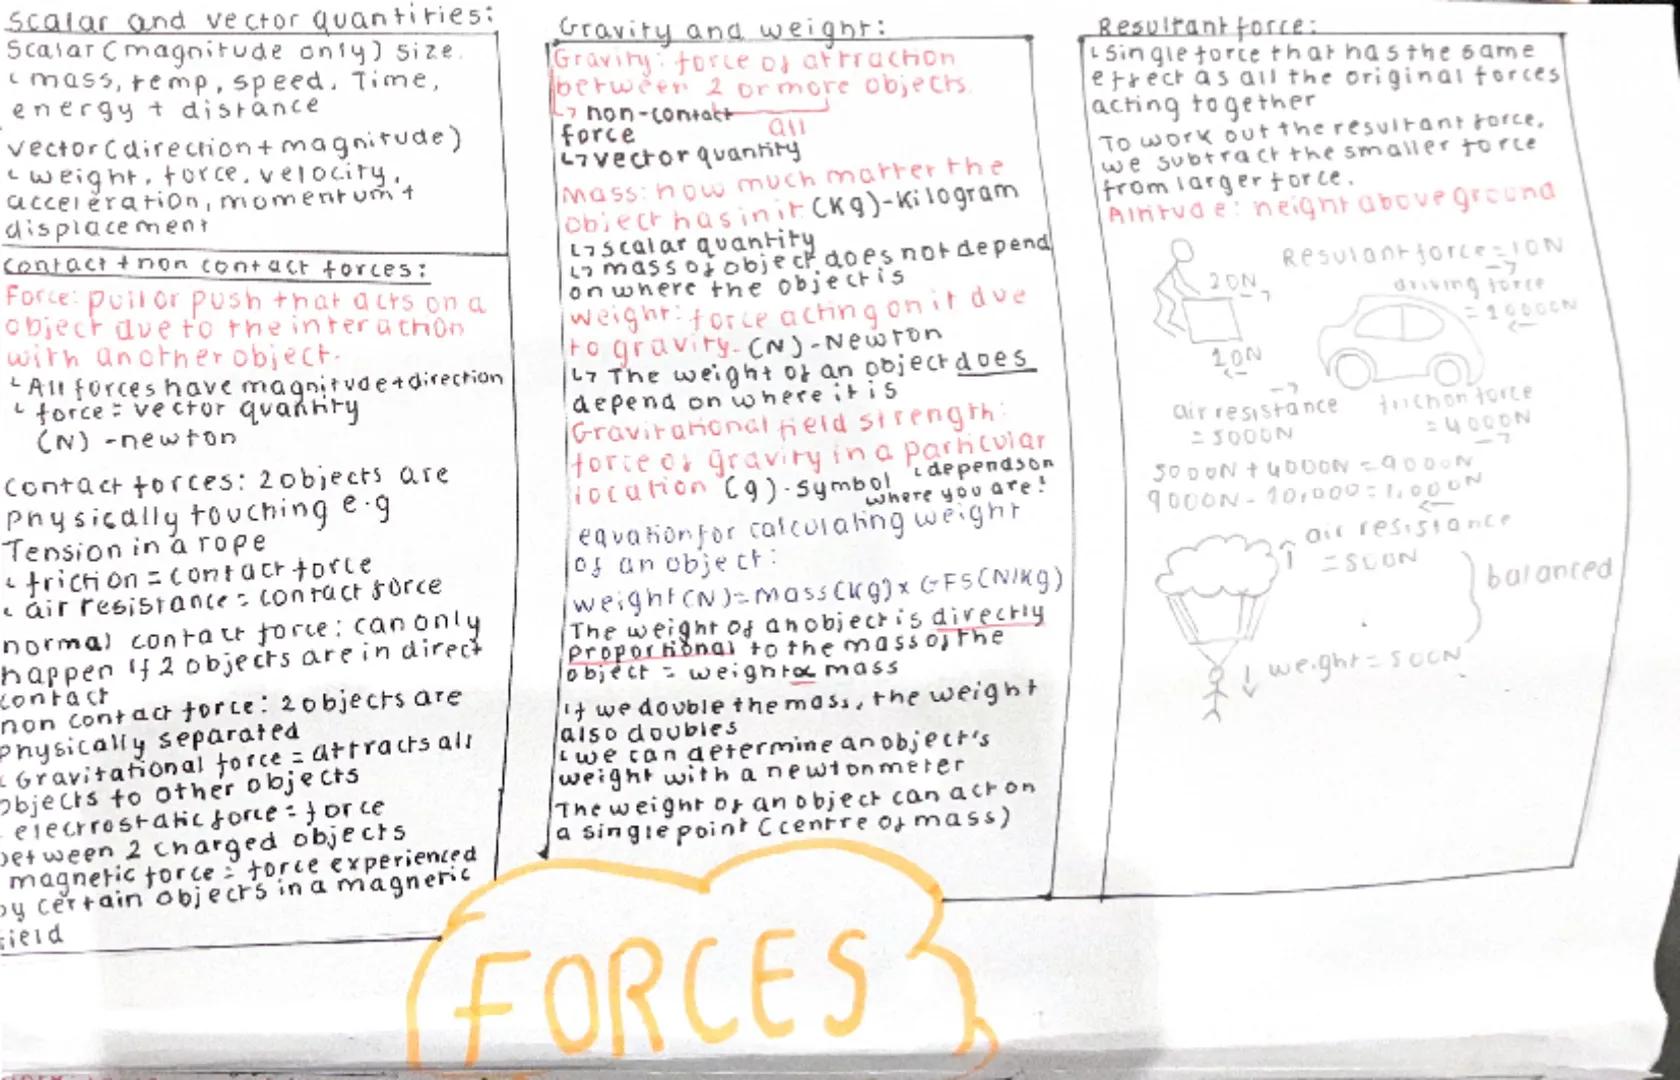 Scalar and vector quantities:
Scalar (magnitude only) size.
↳ mass, temp, speed, Time,
energy + distance
vector (direction + magnitude)
↳ weight, force, velocity,
acceleration, momentum +
displacement
Contact + non contact forces:
Force: pull or push that acts on a
object due to the interaction
with another object.
↳ All forces have magnitude + direction
↳ force = vector quantity
(N) - newton
Contact forces: 2 objects are
physically touching e.g
Tension in a rope
↳ friction = contact force
↳ air resistance = contact force
normal contact force: can only
happen if 2 objects are in direct
contact
non contact force: 2 objects are
physically separated
↳ Gravitational force = attracts all
objects to other objects
electrostatic force = force
between 2 charged objects
magnetic force = force experienced
by certain objects in a magnetic
field
Gravity and weight:
Gravity: force of attraction
between 2 or more objects.
↳ non-contact
force
all
↳ vector quantity
Mass: how much matter the
object has in it (Kg) - Kilogram
↳ scalar quantity
↳ mass of object does not depend
on where the object is
weight: force acting on it due
to gravity. (N) - Newton
↳ The weight of an object does
depend on where it is
Gravitational field strength:
force of gravity in a particular
location (g) - symbol ↳ depends on
where you are!
equation for calculating weight
of an object:
weight (N) = mass (kg) x GFS (N/kg)
The weight of an object is directly
proportional to the mass of the
object = weight ∝ mass
if we double the mass, the weight
also doubles
↳ we can determine an object's
weight with a newtonmeter
The weight of an object can act on
a single point (centre of mass)
Resultant force:
↳ Single force that has the same
effect as all the original forces
acting together
To work out the resultant force,
we subtract the smaller force
from larger force.
Altitude: height above ground
Resultant force = 10N
→
20N
→
10N
←
driving force
= 10000N
←
→
air resistance
= 5000N
friction force
= 4000N
→
5000N + 4000N = 9000N
9000N - 10,000 = 1,000N
←
↑ air resistance
= 500N
balanced
↓ weight = 500N
FORCES